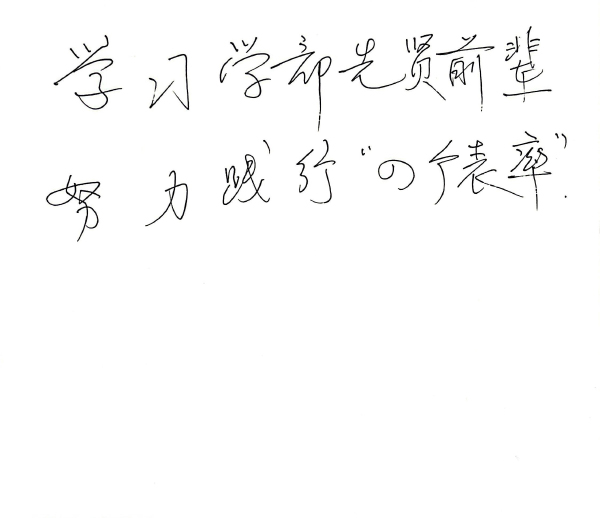 学习学部先贤前辈
努力践行“四个表率”.